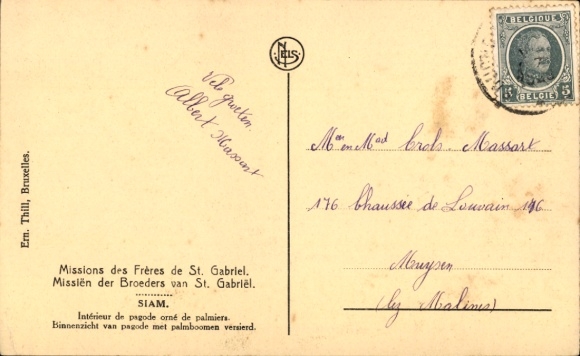 BELGIQUE
5 5
BELGIË
NELS
Vele groeten.
Albert Massart
Mr en Mad Crols-Massart
176 Chaussée de Louvain 176
Muysen
(lez Malines)
Ern. Thill, Bruxelles.
Missions des Frères de St. Gabriel.
Missiën der Broeders van St. Gabriël.
SIAM.
Intérieur de pagode orné de palmiers.
Binnenzicht van pagode met palmboomen versierd.